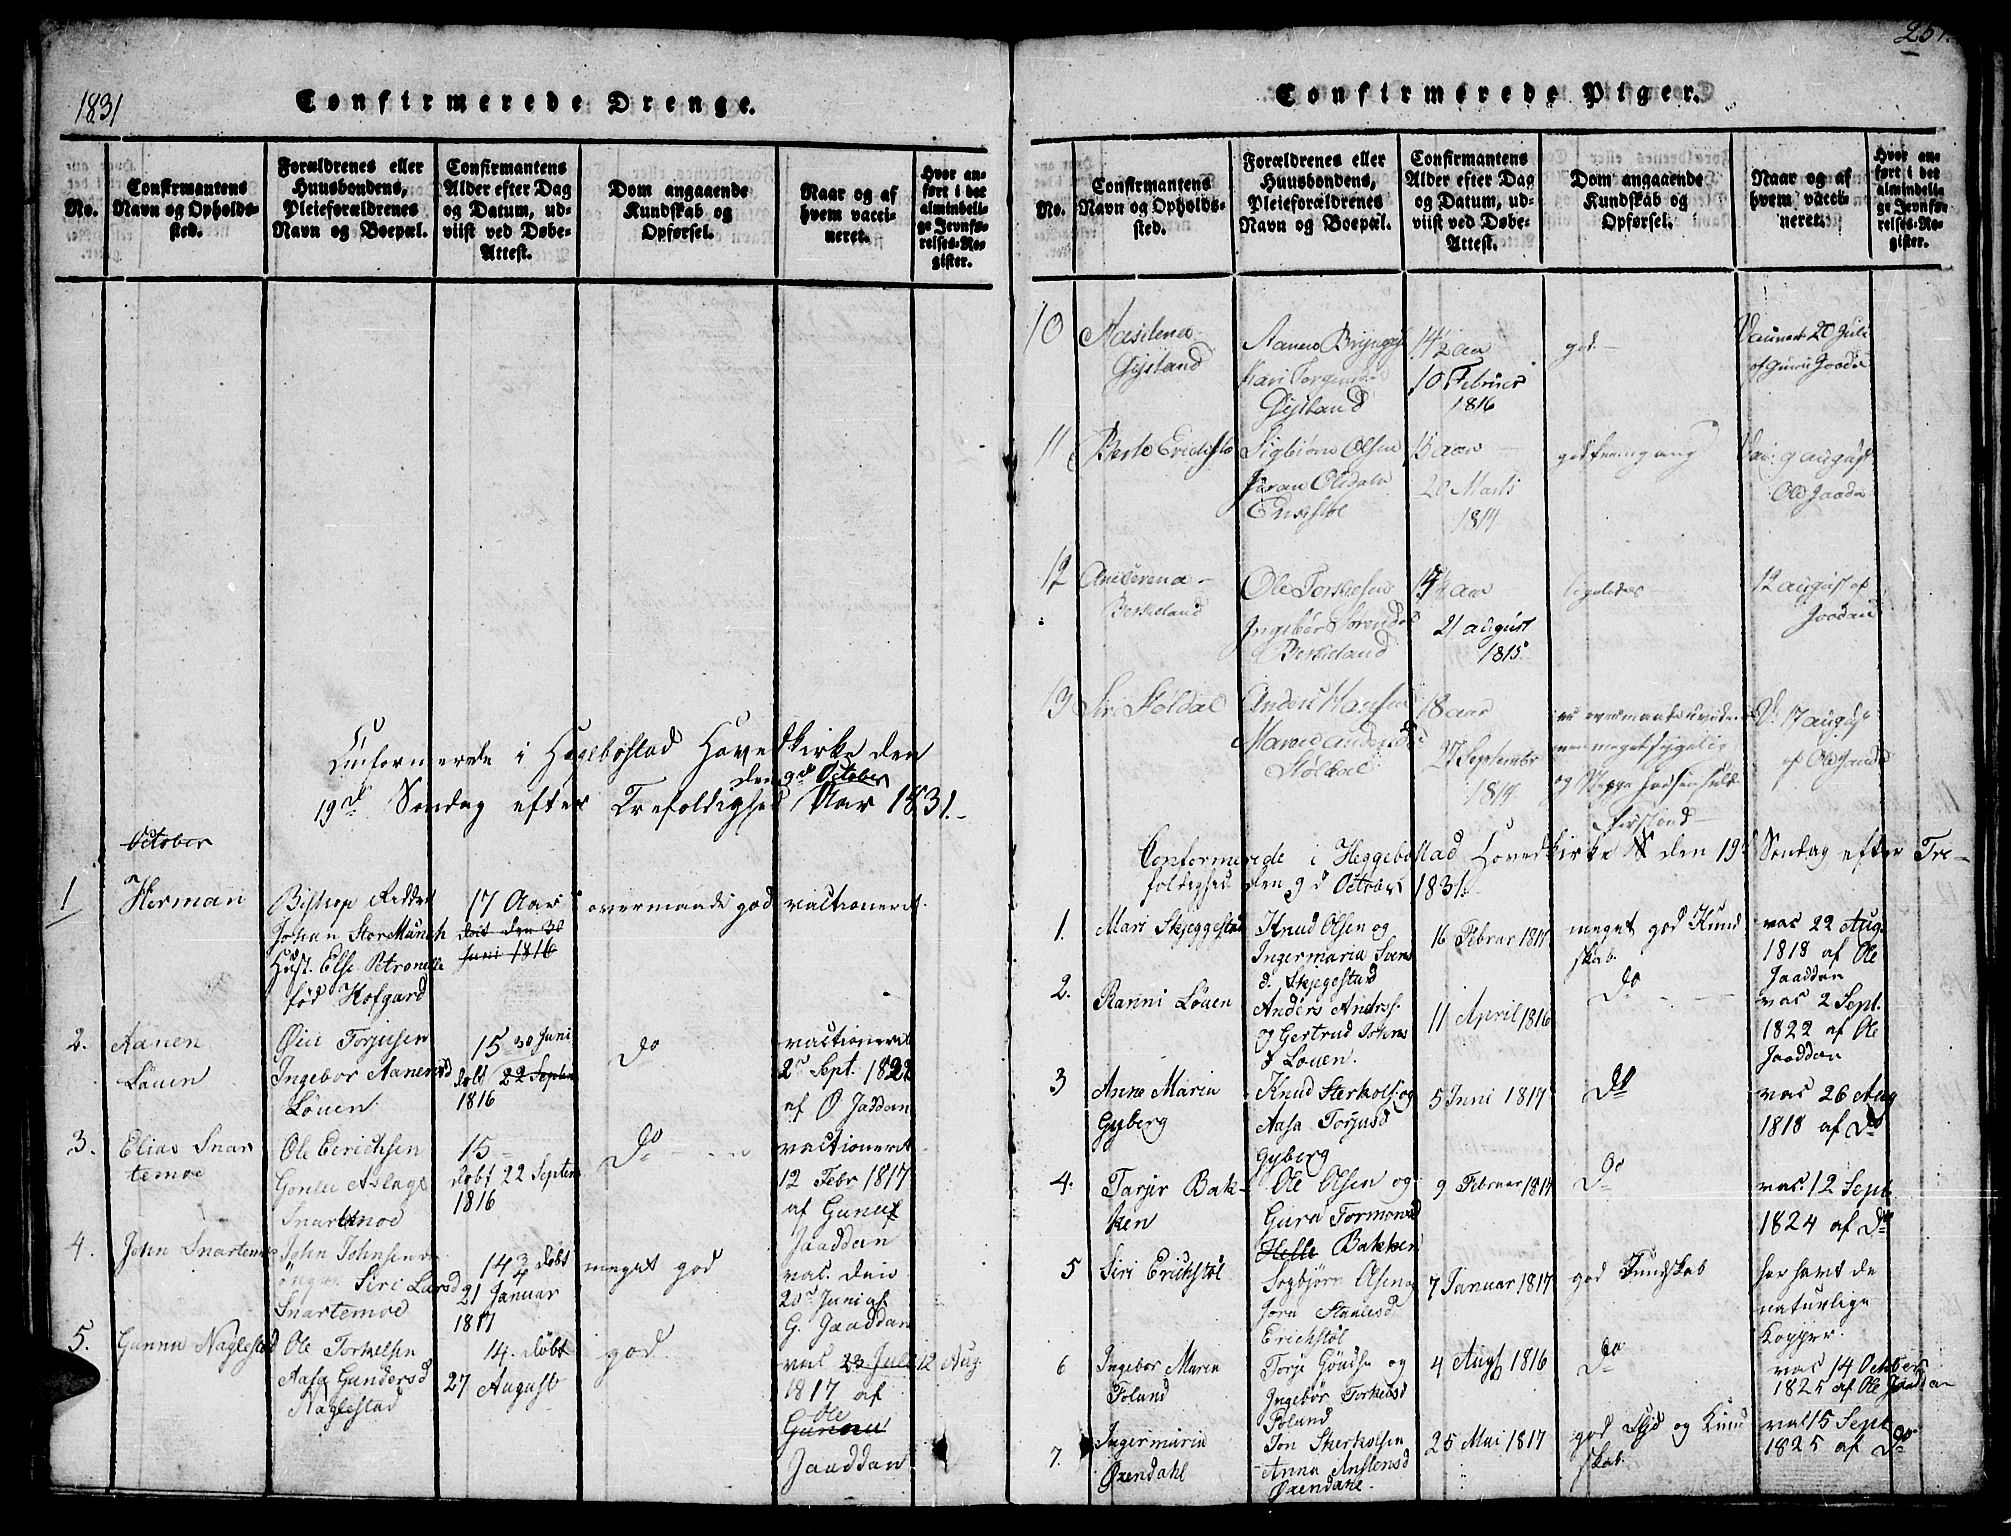 1831
Confirmerede Drenge.
No.
Confirmantens
Navn og Opholds-
sted.
Forældrenes eller
Huusbondens,
Pleieforældrenes
Navn og Boepæl.
Confirmantens
Alder efter Dag
og Datum, ud-
viist ved Døbe-
Attest.
Dom angaaende
Kundskab og
Opførsel.
Naar og af
hvem vacci-
neret.
Hvor an-
ført i det
almindeli-
ge Jevnfø-
relses-Re-
gister.
i Hegebøstad Hovedkirke den
den 9de October
19de Søndag efter Trefoldighed Aar 1831.
October
1
Herman
Biskop Ridder
Johan Stor Munch
Hust. Else Petronelle
fød Hofgard
17 Aar
døbt den 30
Juni 1816
overmaade god
vactioneret
2.
Aanen
Løuen
Øie Torjusen
Ingebor Aanensd
Løuen
15 30 Juni
døbt 22 Septem
1816
do
vactioneret
2den Sept. 1822
af O Jaddan
3.
Elias Snar
temoe
Ole Eerichsen
Gonlei Aslags
Snartemoe
15
døbt 22 Septem
1816
Do
vactioneret
12 Febr 1817
af Gunuf
Jaaddan
4.
John Snartemoe
John Johnsen
Siri Larsd
Snartemoe
14 3/4 døbt
21 Januar
1817
meget god
vac. den
20de Juni af
G. Jaaddan
5.
Gunnu Naglestad
Ole Torkelsen
Aasa Gundersd
Naglestad
14. døbt
27 August
god
vac 23 Juli 12 Aug.
1817 af
Ole
Gunnu
Jaaddan
257.
Confirmerede Piger.
No.
Confirmantens
Navn og Opholds-
sted.
Forældrenes eller
Huusbondens,
Pleieforældrenes
Navn og Boepæl.
Confirmantens
Alder efter Dag
og Datum, ud-
viist ved Døbe-
Attest.
Dom angaaende
Kundskab og
Opførsel.
Naar og af
hvem vacci-
neret.
Hvor an-
ført i det
almindeli-
ge Jevnfø-
relses-Re-
gister.
10
Gysland
Kari
Gysland
14 1/2 aar
10 Februar
1816
god
20 Juli
11
Berte Erichstø
Sigbiørn Olsen
15 aar
20 Marts
1817
god fremgang
9 august
Ole Jaada
12
Aneserena
Berkeland
Ole Torkelsen
Ingebor
Berkeland
aar
21 august
1815
ligeledes
12 august af
Jaadan
13
Siri Støldal
Anders Hansen
Støldal
18 aar
27 September
men meget sygelig
og
Forstand
17 august
af Ole Jaada
Conformerede i Heggebøstad Hovedkirke den 19de Søndag efter Tre-
foldighed den 9de October 1831.
1.
Mari Skjeggestad
Knud Olsen og
Ingermaria Svens
d. Skjegestad
16 Februar 1817
meget god Kund
skab.
vac 22 Aug.
1818 af Ole
Jaaddan
2.
Ranni Løuen
Anders Andrs.
og Gertrud Johns
d Louen.
11 April 1816
Do
vac 2 Sept.
1822 af Ole
Jaaddan
3
Anne Maria
Gyberg
Knud Sterkols. og
Aasa Torjusd
Gyberg
5 Juni 1817
Do
vac 26 Aug
1818 af Do
4.
Tarjer Bak-
ken
Ole Olsen og
Gura Tormonsd
Helle Bakken
9 Februar 1817
Do
vac. 12 Sept
1824 af Do
5
Siri Erickstøl
Sogbjørn Olsen og
Jora Stanlesd
Erichstøl
7 Januar 1817
god Kundskab
har havt de
naturlige
Kopper.
6
Ingebor Maria
Foland
Torje Gundsn og
Ingebor Torkelsd
Foland
4 Augs 1816
Do
vac 14 October
1825 af Ole Jaaddan
7.
Ingermaria
Øxendahl
Jon Sterkolsen
Anna Anstensd
Øxendahl.
25 Mai 1817
god Flid og Kund
skab.
vac 15 Sept
1825 af Do